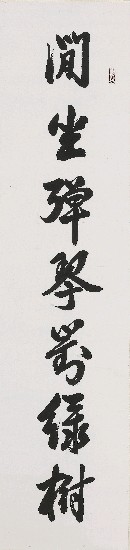 閒坐彈琴對綠樹